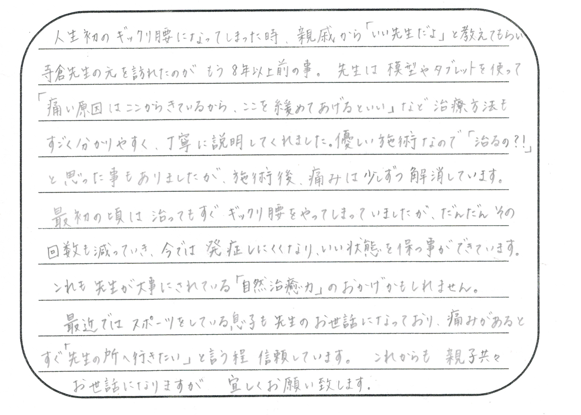 人生初のギックリ腰になってしまった時、親戚から「いい先生だよ」と教えてもらい
寺倉先生の元を訪れたのが もう8年以上前の事。 先生は 模型やタブレットを使って
「痛い原因はここからきているから、ここを緩めてあげるといい」など 治療方法も
すごく分かりやすく、丁寧に説明してくれました。優しい施術なので「治るの?!」
と思った事もありましたが、施術後、痛みは少しずつ解消しています。
最初の頃は治ってもすぐ ギックリ腰をやってしまっていましたが、だんだん その
回数も減っていき、今では 発症しにくくなり、いい状態を保つ事ができています。
これも先生が大事にされている「自然治癒力」のおかげかもしれません。
最近では スポーツをしている息子も先生のお世話になっており、痛みがあると
すぐ「先生の所へ行きたい」と言う程 信頼しています。 これからも 親子共々
お世話になりますが 宜しくお願い致します.